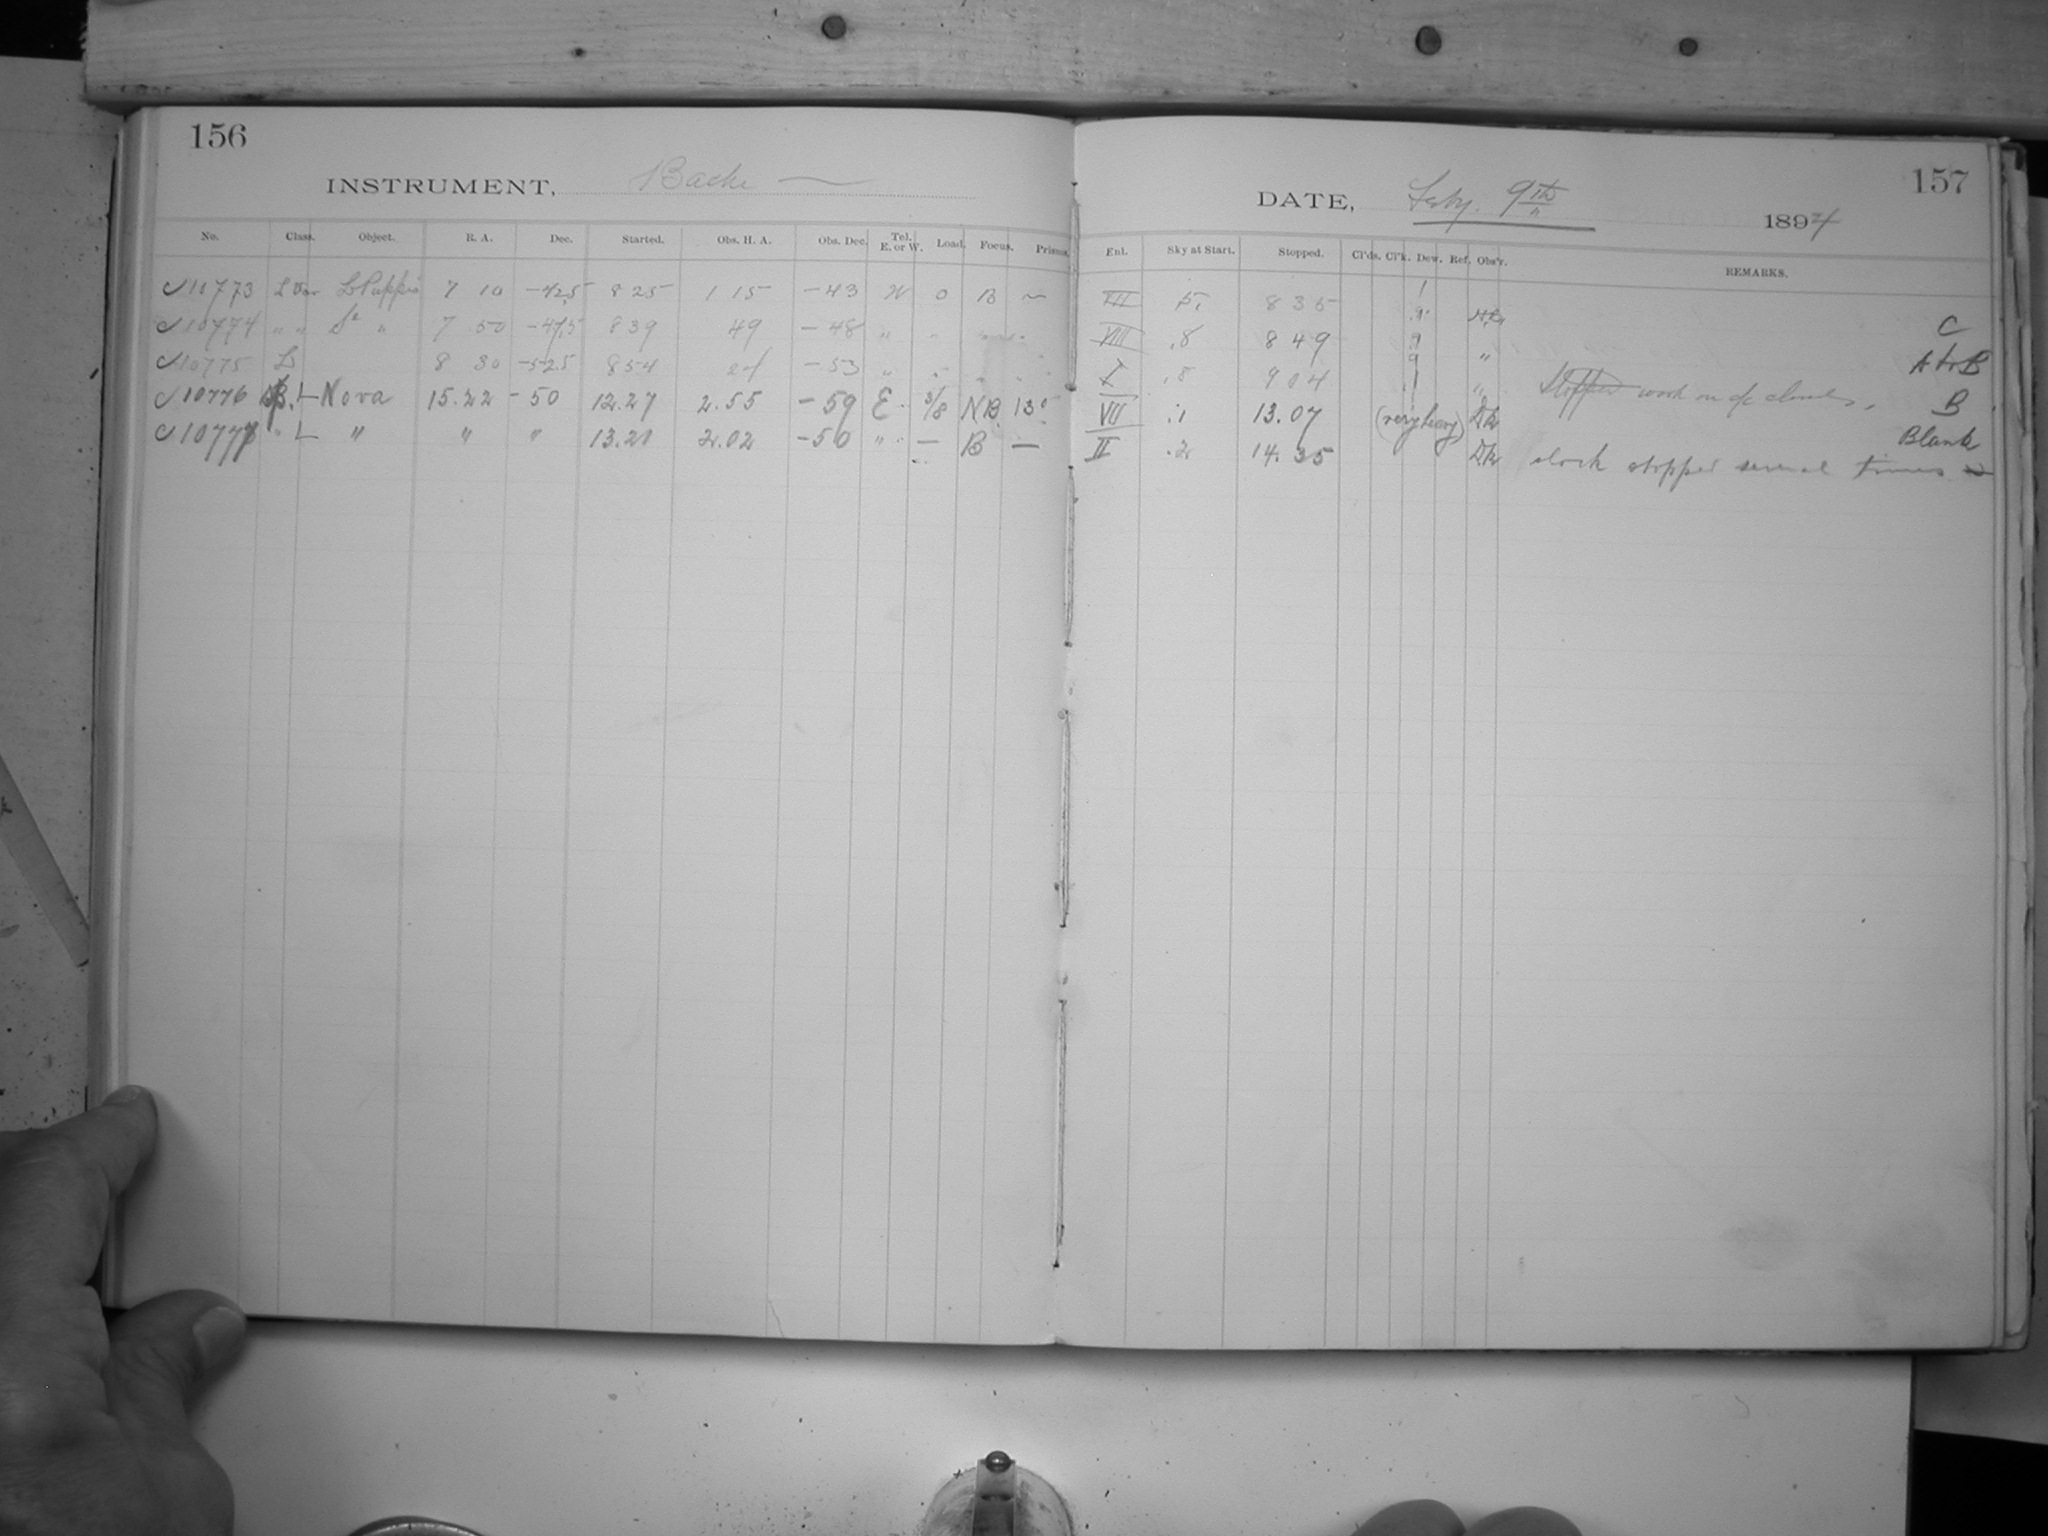 156
157
INSTRUMENT, Bache
DATE, Feby. 9th 1894
No. Class. Object. R. A. Dec. Started. Obs. H. A. Obs. Dec. Tel. E. or W. Load. Focus. Prisms. Enl. Sky at Start. Stopped. Cl'ds. Cl'k. Dew. Ref. Obs'r. REMARKS.
10773 L Puppis 7 10 -42.5 8 25 1 15 -43 W 0 B VII 5 8 35 C
10774 " " " 7 50 -47.5 8 39 49 -48 " VIII .8 8 49 " A to B
10775 8 30 -52.5 8 54 24 -53 " I .8 9 04 " Stopped work on a/c clouds. B
10776 L Nova 15.22 -50 12.27 2.55 -59 E NB 13° VII .1 13.07 (very heavy) Dk Blank
10777 " L " " " 13.20 2.02 -50 " — B — II .2 14.35 Dk clock stopped several times